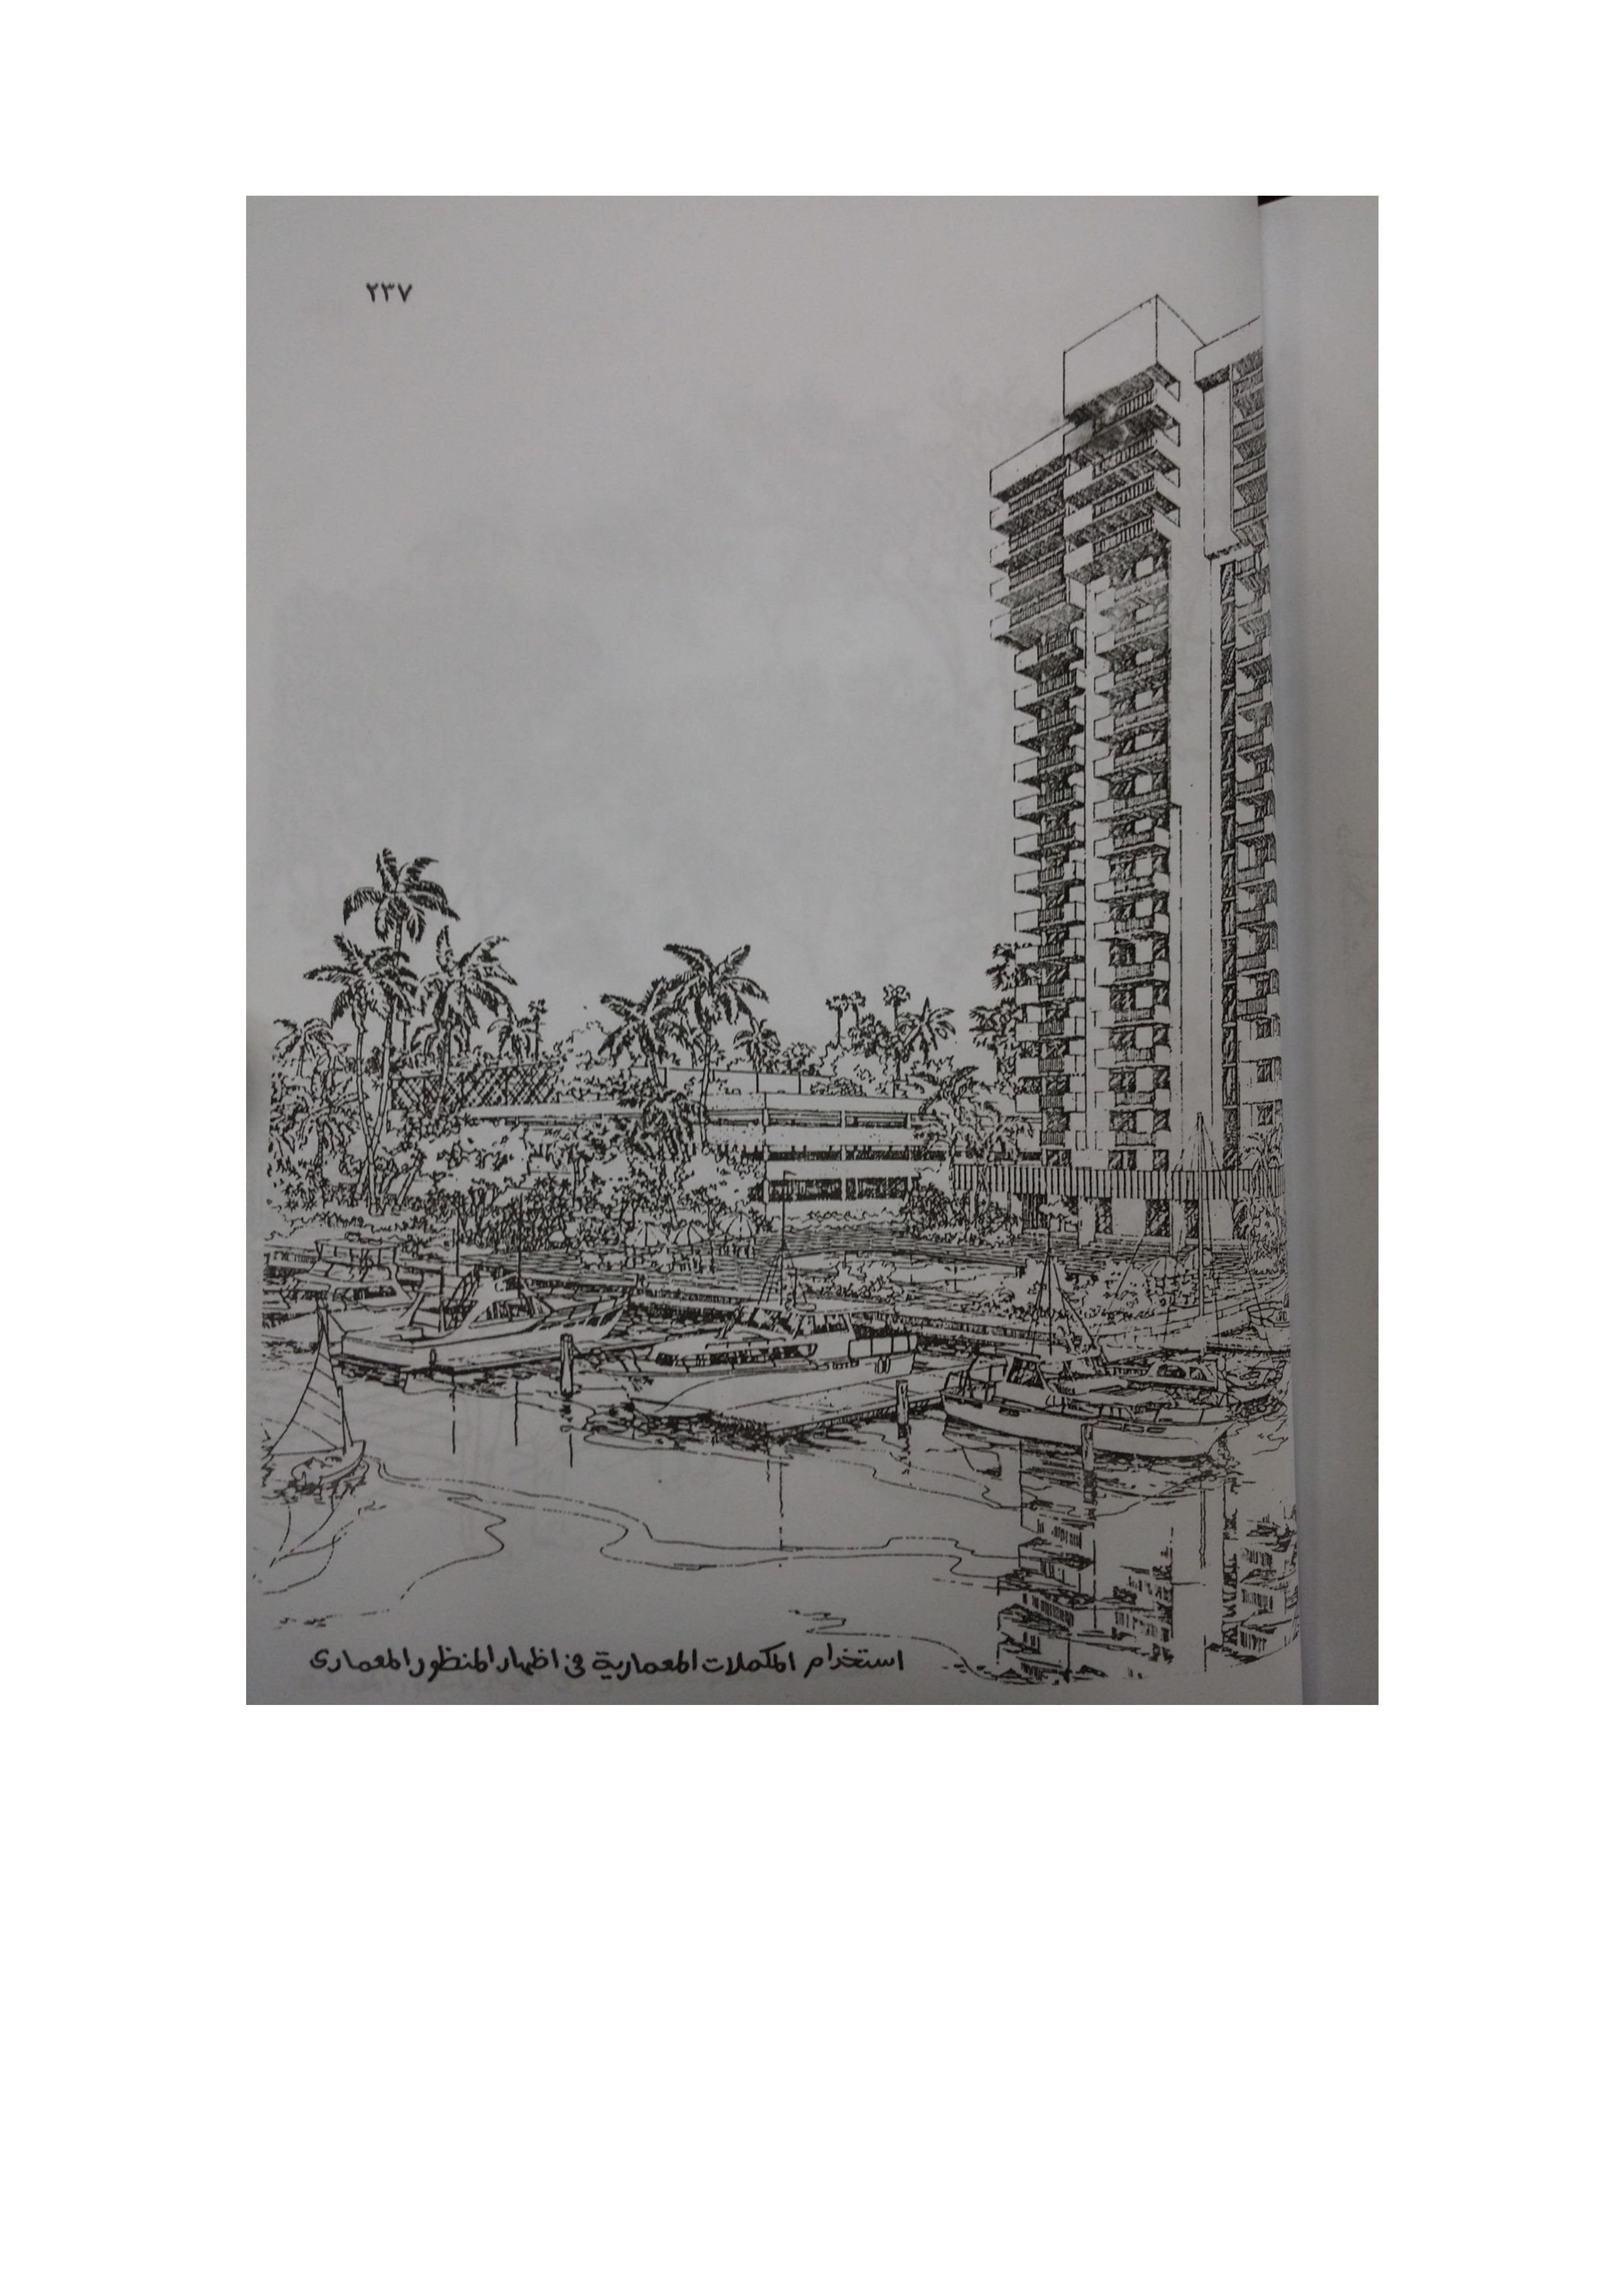 ٢٣٧
استخدام المكملات المعمارية فى اظهار المنظور المعمارى